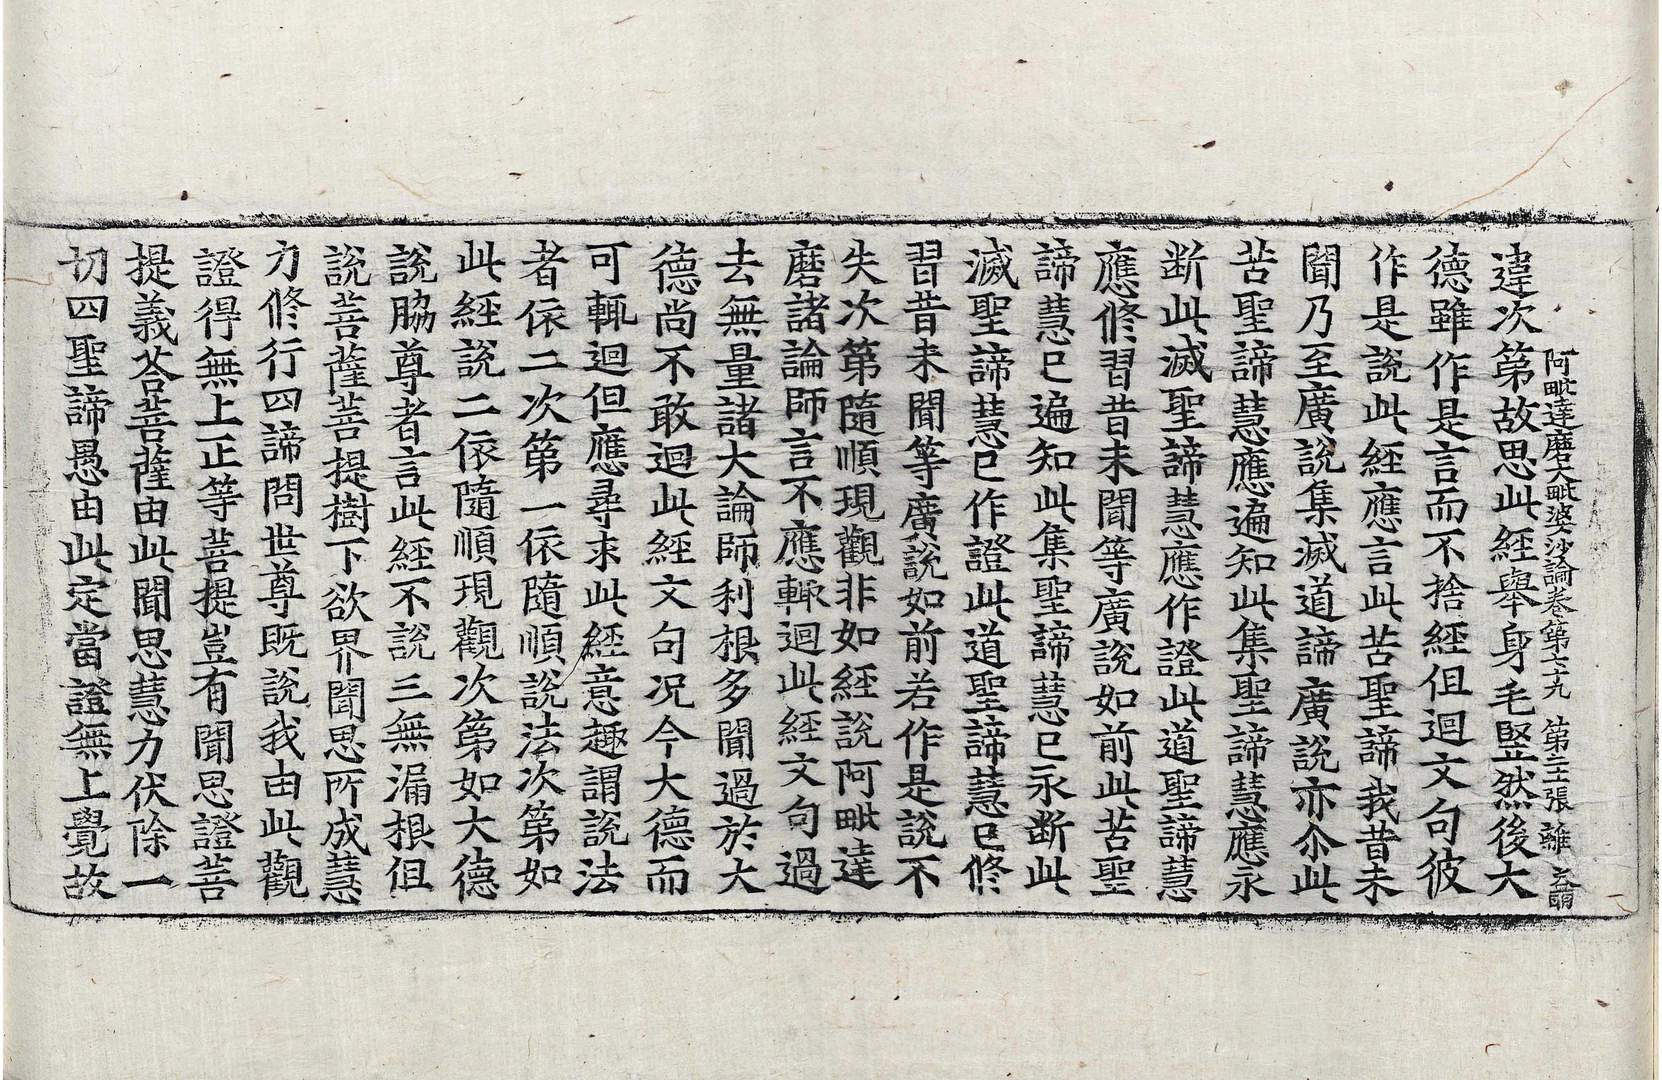 阿毗達磨大毗婆沙論卷第七十九 第二十張 離
違次第故思此經舉身毛竪然後大
德雖作是言而不捨經但迴文句彼
作是說此經應言此苦聖諦我昔未
聞乃至廣說集滅道諦廣說亦尒此
苦聖諦慧應遍知此集聖諦慧應永
断此滅聖諦慧應作證此道聖諦慧
應修習昔未聞等廣說如前此苦聖
諦慧已遍知此集聖諦慧已永断此
滅聖諦慧已作證此道聖諦慧已修
習昔未聞等廣說如前若作是說不
失次第隨順現觀非如經說阿毗達
磨諸論師言不應輙迴此經文句過
去無量諸大論師利根多聞過於大
德尚不敢迴此經文句况今大德而
可輙迴但應尋求此經意趣謂說法
者依二次第一依隨順說法次第如
此經說二依隨順現觀次第如大德
說脇尊者言此經不說三無漏根但
說菩薩菩提樹下欲界聞思所成慧
力修行四諦問世尊既說我由此觀
證得無上正等菩提豈有聞思證菩
提義荅菩薩由此聞思慧力伏除一
切四聖諦愚由此定當證無上覺故